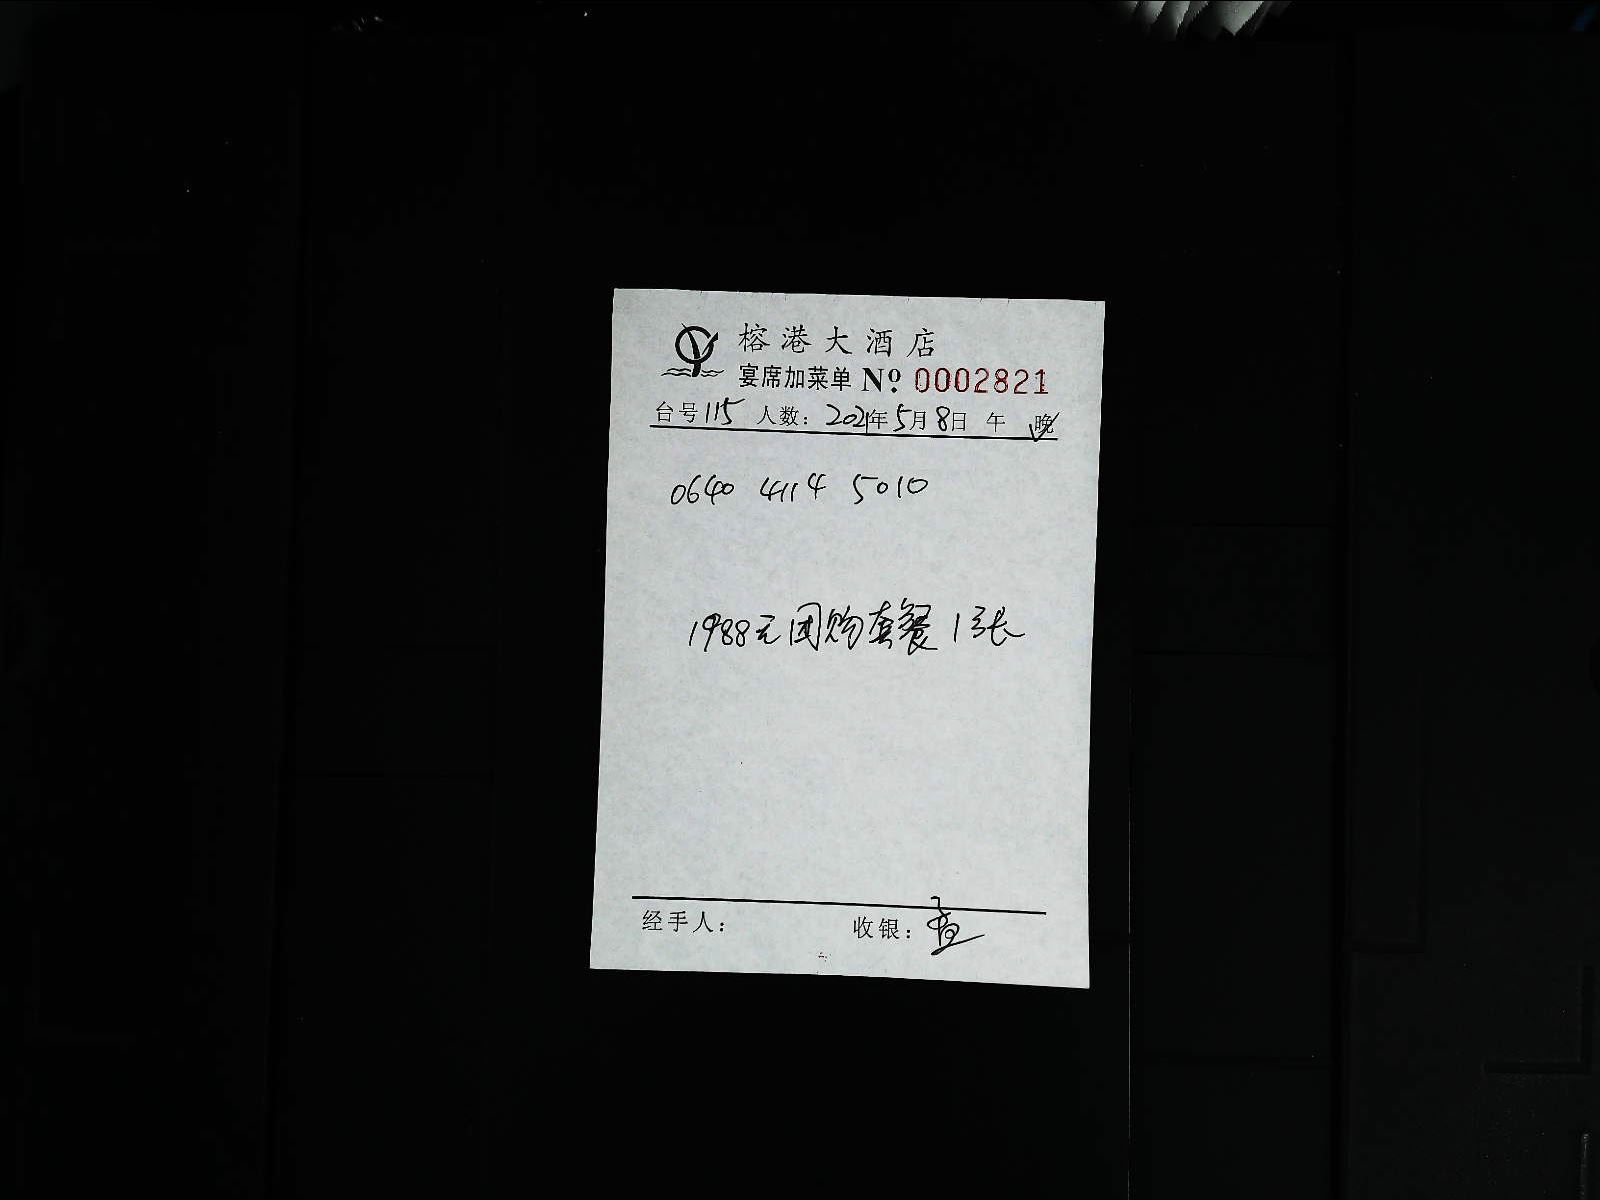 榕港大酒店
宴席加菜单 Nº 0002821
台号115 人数: 2021年5月8日 午 晚
0640 4114 5010
1988元团购套餐1张
经手人: 收银: